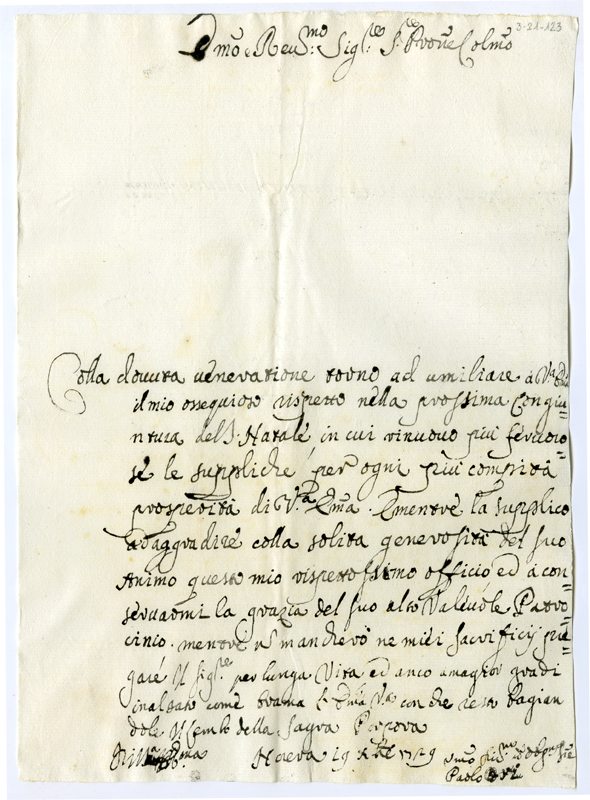 3-21-123
Emõ e Reu:mo Sig:re S:r Prõne Colmõ
Colla douuta ueneratione torno ad umiliare à V:ra
il mio ossequioso rispetto nella prossima Congiu=
ntura del S. Natale in cui rinuouo più feruoro=
se le suppliche per ogni più compita
prosperità di V.ra Emã. E mentre la supplico
ad aggradire colla solita generosità del suo
Animo questo mio rispettosissimo officio ed à con=
seruarmi la grazia del suo alto Valeuole Patro=
cinio. mentre nõ mancherò ne miei Sacrificij pre=
garé Il Sig:re per lunga Vita ed anco a magior gradi
inalzato come brama con che resto bagian
dole il lembo della Sagra Porpora
Di V:ra Emã 19 Xbre 1729
Paolo